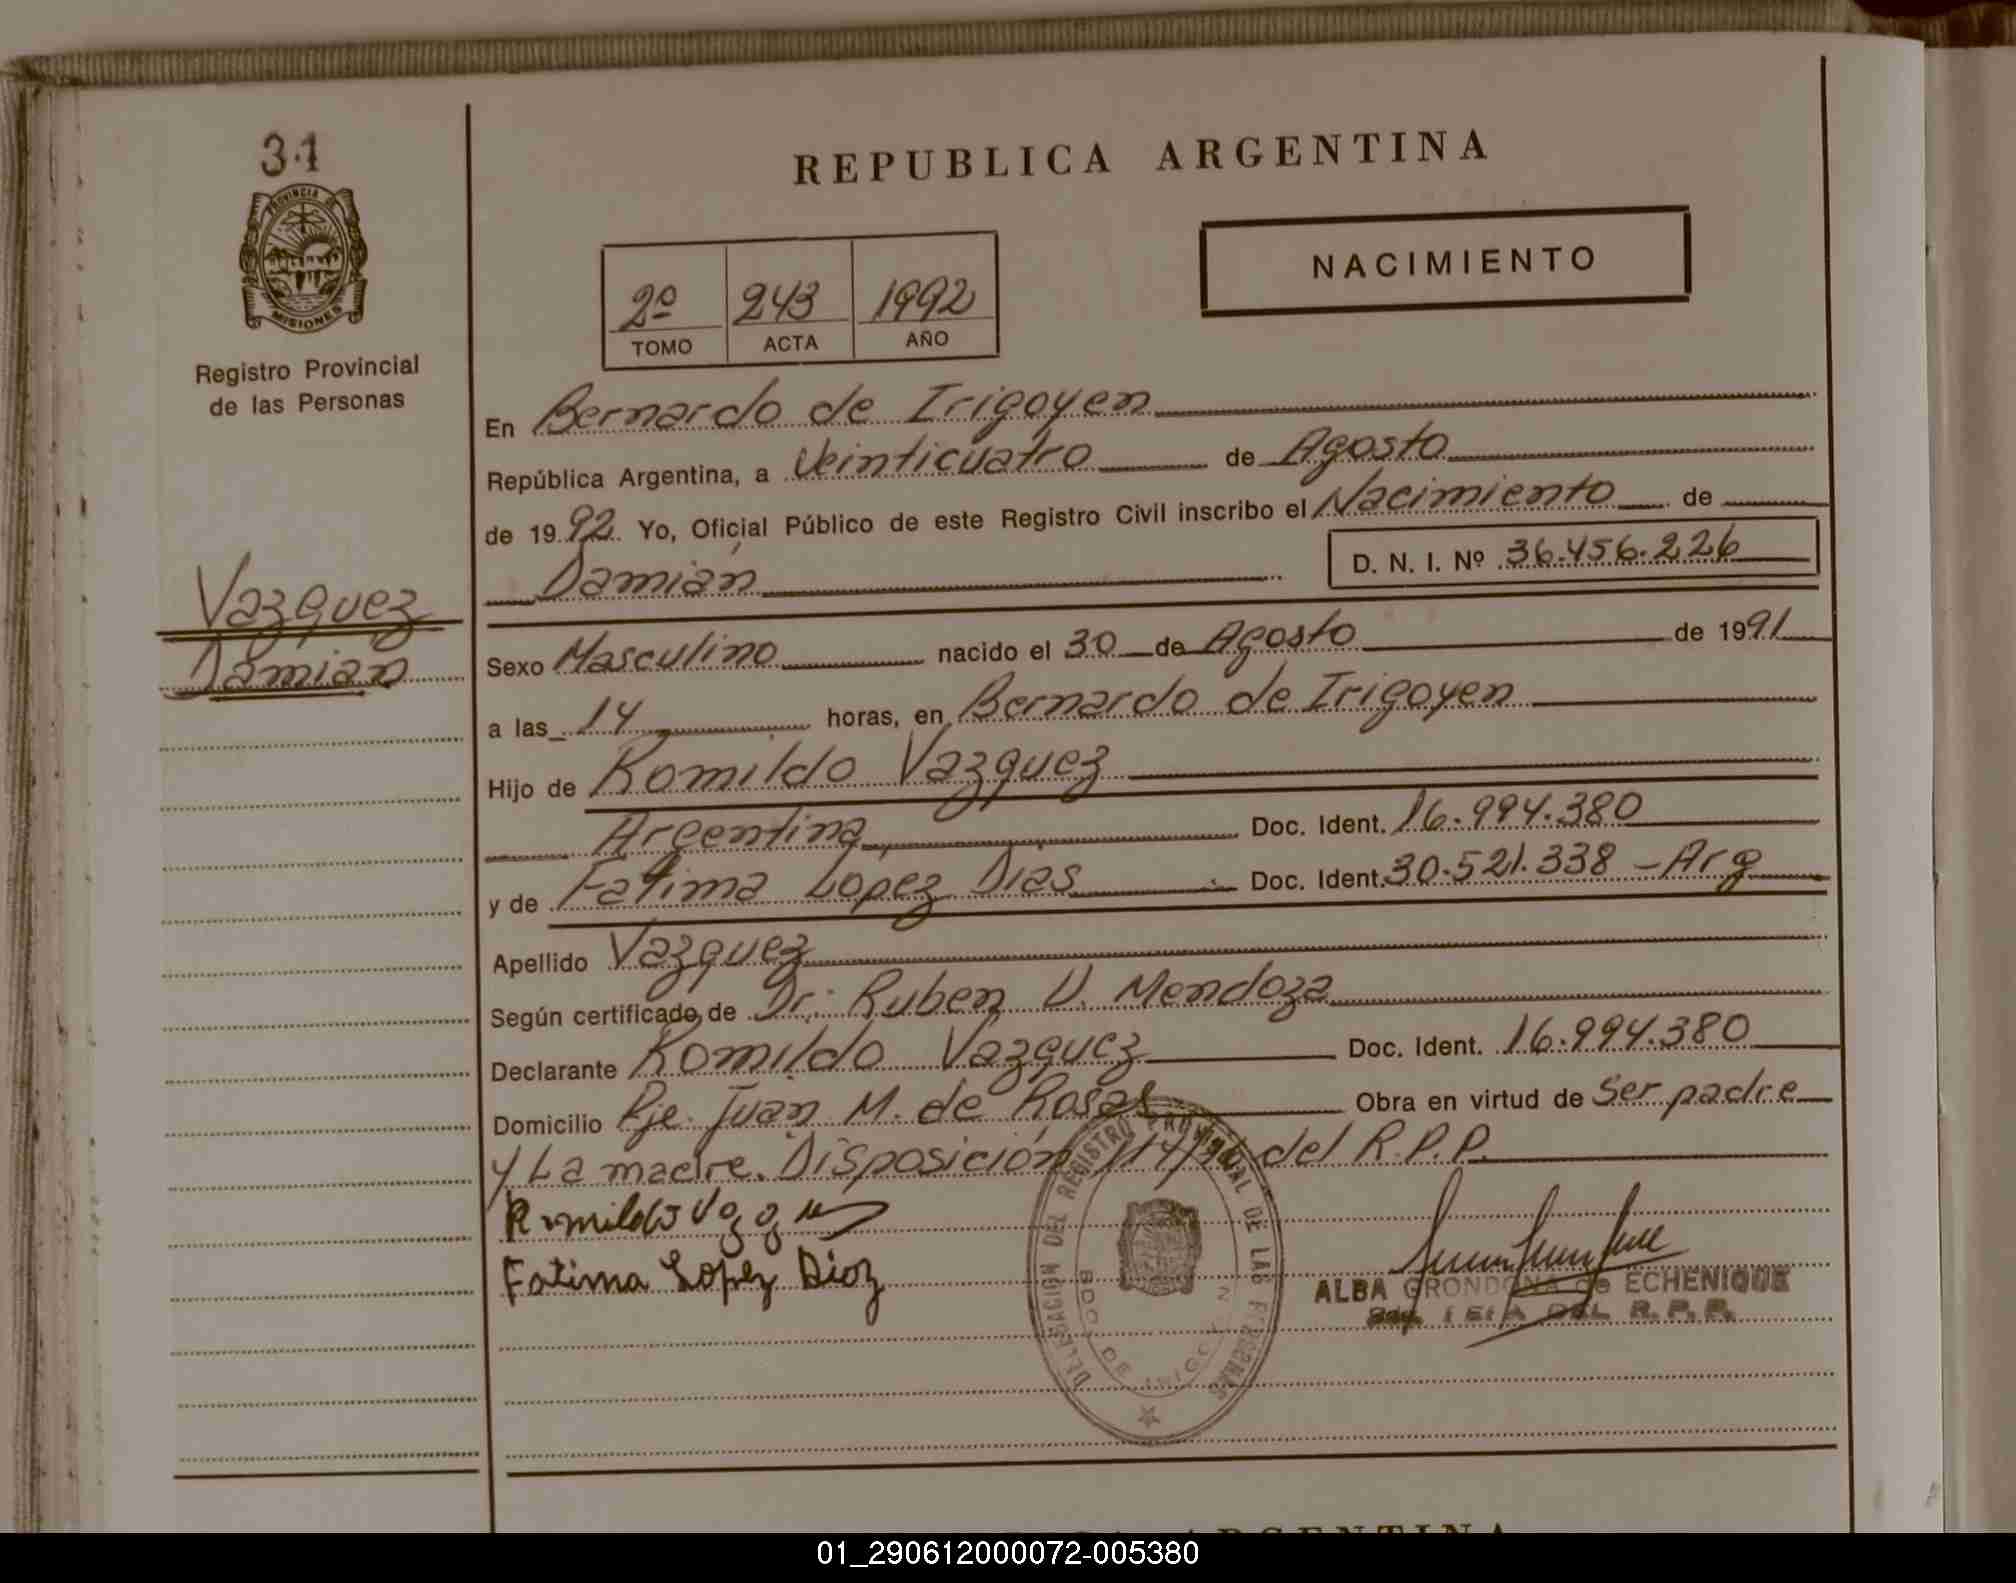 31
PROVINCIA DE
MISIONES
Registro Provincial
de las Personas
Vazquez
Damian
REPUBLICA ARGENTINA
NACIMIENTO
2º 243 1992
TOMO ACTA AÑO
En Bernardo de Irigoyen
República Argentina, a Veinticuatro de Agosto
de 1992. Yo, Oficial Público de este Registro Civil inscribo el Nacimiento de
Damián D. N. I. Nº 36.456.226
Sexo Masculino nacido el 30 de Agosto de 1991
a las 14 horas, en Bernardo de Irigoyen
Hijo de Romildo Vazquez
Argentina Doc. Ident. 16.994.380
y de Fatima López Dias Doc. Ident. 30.521.338 - Arg
Apellido Vazquez
Según certificado de Dr. Ruben V. Mendoza
Declarante Romildo Vazquez Doc. Ident. 16.994.380
Domicilio Pje. Juan M. de Rosas Obra en virtud de Ser padre
y La madre. Disposición del R.P.P.
Romildo Vazquez
Fatima Lopez Dioz
DELEGACION DEL REGISTRO PROVINCIAL DE LAS PERSONAS
BDO. DE IRIGOYEN
ALBA GRONDONA de ECHENIQUE
DEL R.P.P.
ARGENTINA
01_290612000072-005380